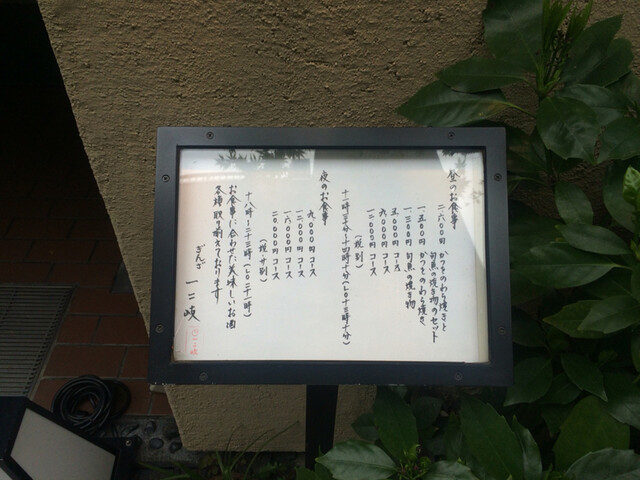 昼のお食事
二六〇〇円 かつをのわら焼きと
旬魚の焼き物のセット
一五〇〇円 かつをのわら焼き
一三〇〇円 旬魚の焼き物
五〇〇〇円 コース
九〇〇〇円 コース
一二〇〇〇円 コース
(税別)
十一時三十分〜十四時十分(LO十三時十分)
夜のお食事
九〇〇〇円 コース
一二〇〇〇円 コース
一六〇〇〇円 コース
二〇〇〇〇円 コース
(税・サ別)
十八時〜二十三時(LO二十一時)
お食事に合わせた美味しいお酒
各種取り揃えております。
ぎんざ 一二岐